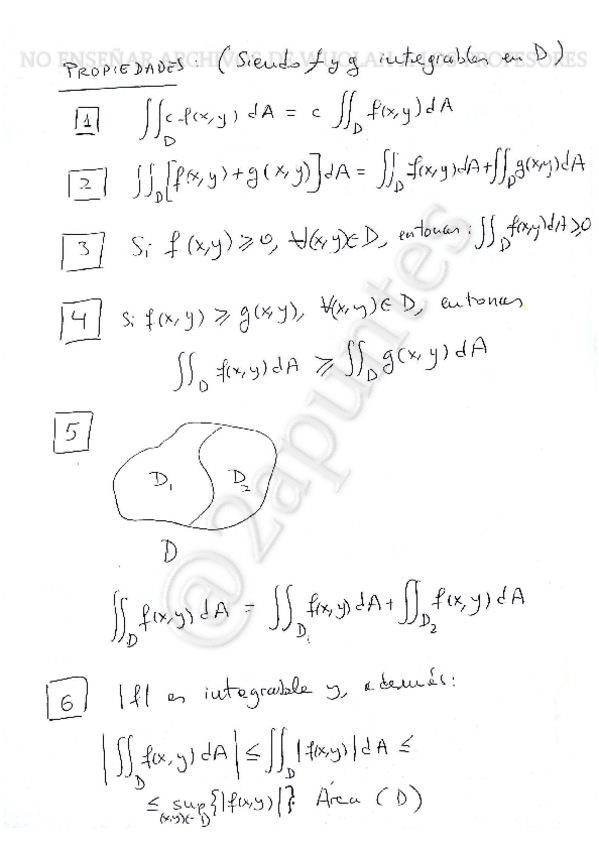 NO ENSEÑAR ARCHIVOS DE WUOLAH A LOS PROFESORES
PROPIEDADES: (Siendo f y g integrables en D)
1 ∬_D c f(x,y) dA = c ∬_D f(x,y) dA
2 ∬_D [f(x,y) + g(x,y)] dA = ∬_D f(x,y) dA + ∬_D g(x,y) dA
3 Si f(x,y) ≥ 0, ∀(x,y) ∈ D, entonces: ∬_D f(x,y) dA ≥ 0
4 Si f(x,y) ≥ g(x,y), ∀(x,y) ∈ D, entonces
∬_D f(x,y) dA ≥ ∬_D g(x,y) dA
5
D₁ D₂
D
∬_D f(x,y) dA = ∬_D₁ f(x,y) dA + ∬_D₂ f(x,y) dA
6 |f| es integrable y, además:
|∬_D f(x,y) dA| ≤ ∬_D |f(x,y)| dA ≤
≤ sup_{(x,y)∈D} {|f(x,y)|} · Área (D)
@2apuntes